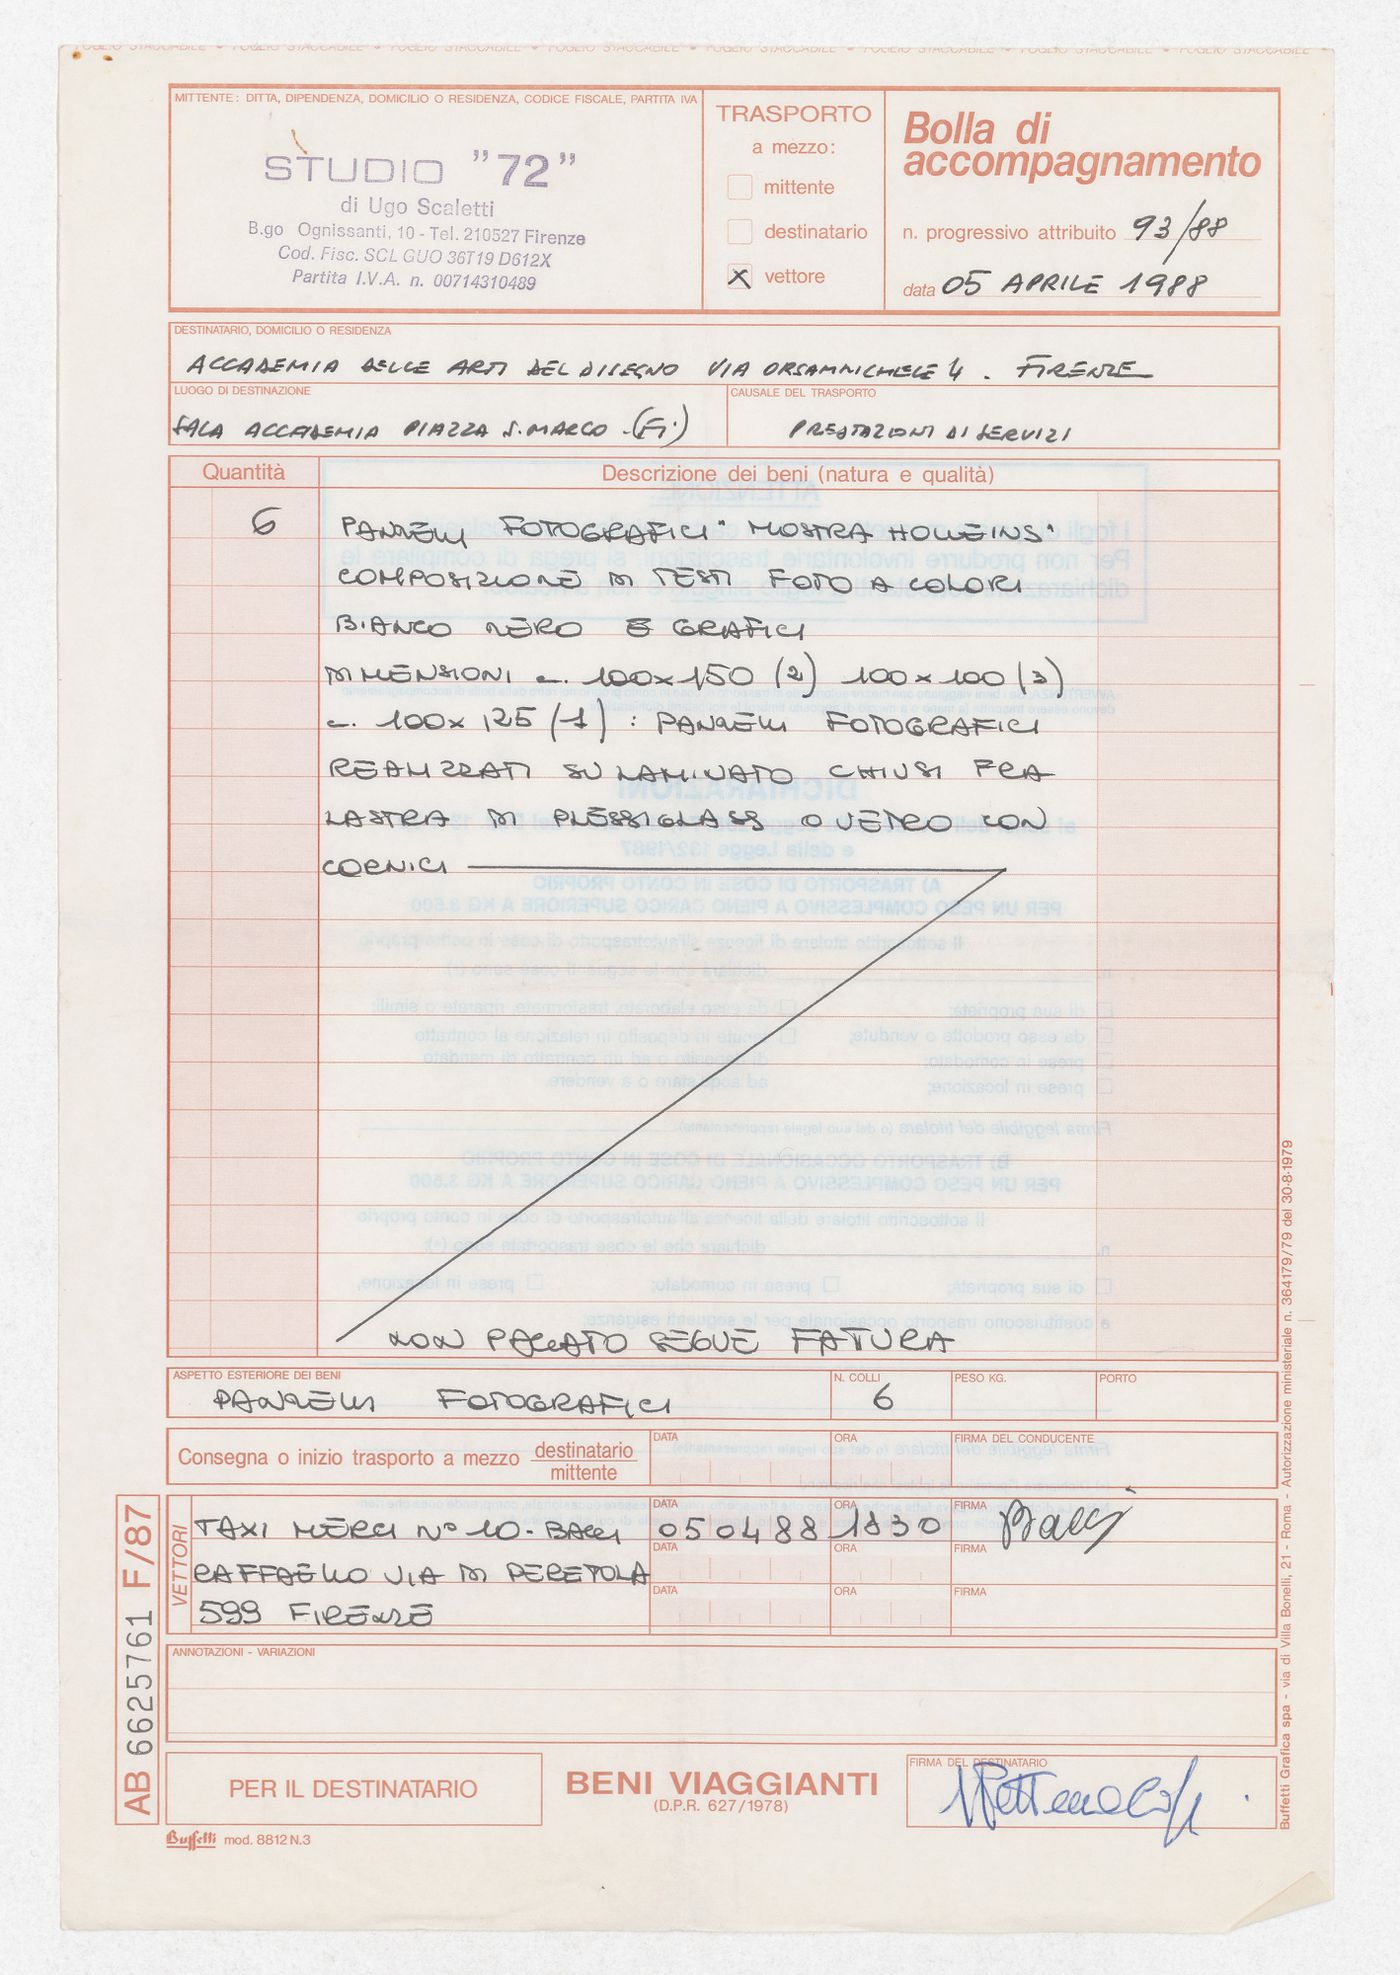 MITTENTE: DITTA, DIPENDENZA, DOMICILIO O RESIDENZA, CODICE FISCALE, PARTITA IVA
STUDIO "72"
di Ugo Scaletti
B.go Ognissanti, 10 - Tel. 210527 Firenze
Cod. Fisc. SCL GUO 36T19 D612X
Partita I.V.A. n. 00714310489
TRASPORTO
a mezzo:
mittente
destinatario
X vettore
Bolla di
accompagnamento
n. progressivo attribuito 93/88
data 05 APRILE 1988
DESTINATARIO, DOMICILIO O RESIDENZA
ACCADEMIA DELLE ARTI DEL DISEGNO VIA ORSANMICHELE 4. FIRENZE
LUOGO DI DESTINAZIONE
SALA ACCADEMIA PIAZZA S. MARCO. (FI)
CAUSALE DEL TRASPORTO
PRESTAZIONI DI SERVIZI
Quantità
Descrizione dei beni (natura e qualità)
6 PANNELLI FOTOGRAFICI "MOSTRA HOLLEINS"
COMPOSIZIONE DI TESTI FOTO A COLORI
BIANCO NERO E GRAFICI
DIMENSIONI c. 100x150 (2) 100x100 (3)
c. 100x125 (1) : PANNELLI FOTOGRAFICI
REALIZZATI SU LAMINATO CHIUSI FRA
LASTRA DI PLESSIGLASS O VETRO CON
CORNICI
NON PAGATO SEGUE FATURA
ASPETTO ESTERIORE DEI BENI
PANNELLI FOTOGRAFICI
N. COLLI
6
PESO KG.
PORTO
Consegna o inizio trasporto a mezzo destinatario
mittente
DATA
ORA
FIRMA DEL CONDUCENTE
VETTORI
TAXI MERCI N° 10 - BACCI
RAFFAELLO VIA DI PERETOLA
599 FIRENZE
DATA
050488
ORA
1830
FIRMA
Bacci
DATA
ORA
FIRMA
DATA
ORA
FIRMA
ANNOTAZIONI - VARIAZIONI
PER IL DESTINATARIO
BENI VIAGGIANTI
(D.P.R. 627/1978)
FIRMA DEL DESTINATARIO
Buffetti mod. 8812 N.3
AB 6625761 F/87
Buffetti Grafica spa - via di Villa Bonelli, 21 - Roma - Autorizzazione ministeriale n. 364179/79 del 30-8-1979